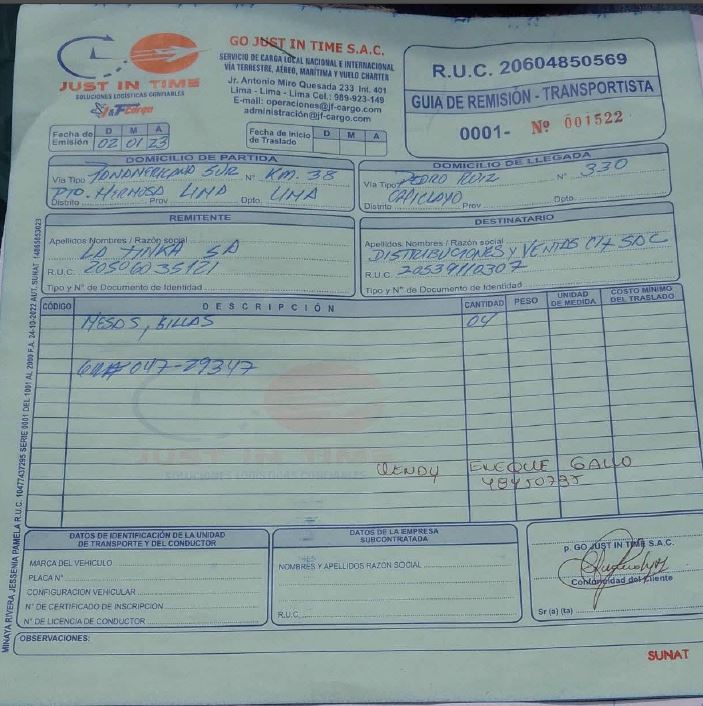 JUST IN TIME
SOLUCIONES LOGÍSTICAS CONFIABLES
J&F Cargo
GO JUST IN TIME S.A.C.
SERVICIO DE CARGA LOCAL NACIONAL E INTERNACIONAL
VÍA TERRESTRE, AÉREO, MARÍTIMA Y VUELO CHARTER
Jr. Antonio Miro Quesada 233 Int. 401
Lima - Lima - Lima Cel.: 989-923-149
E-mail: operaciones@jf-cargo.com
administración@jf-cargo.com
R.U.C. 20604850569
GUIA DE REMISIÓN - TRANSPORTISTA
0001- Nº 001522
Fecha de Emisión D M A
02 01 23
Fecha de Inicio de Traslado D M A
DOMICILIO DE PARTIDA
Vía Tipo PANAMERICANA SUR N° KM. 38
PTO. HERMOSA LIMA LIMA
Distrito Prov Dpto.
DOMICILIO DE LLEGADA
Vía Tipo PEDRO RUIZ N° 330
CHICLAYO
Distrito Prov Dpto
REMITENTE
Apellidos Nombres / Razón social
LA TINKA SA
R.U.C. 20506035121
Tipo y N° de Documento de Identidad
DESTINATARIO
Apellidos Nombres / Razón social
DISTRIBUCIONES Y VENTAS SAC
R.U.C. 20539110307
Tipo y N° de Documento de Identidad
CÓDIGO DESCRIPCIÓN CANTIDAD PESO UNIDAD DE MEDIDA COSTO MÍNIMO DEL TRASLADO
MESAS, SILLAS 04
047-29347
JUST IN TIME
SOLUCIONES LOGISTICAS CONFIABLES
WENDY ENEQUE GALLO
48450795
DATOS DE IDENTIFICACIÓN DE LA UNIDAD
DE TRANSPORTE Y DEL CONDUCTOR
MARCA DEL VEHICULO
PLACA N°
CONFIGURACION VEHICULAR
N° DE CERTIFICADO DE INSCRIPCION
N° DE LICENCIA DE CONDUCTOR
DATOS DE LA EMPRESA
SUBCONTRATADA
NOMBRES Y APELLIDOS RAZON SOCIAL
R.U.C.
p. GO JUST IN TIME S.A.C.
Conformidad del Cliente
Sr (a) (ta)
OBSERVACIONES:
SUNAT
MINAYA RIVERA JESSENIA PAMELA R.U.C. 10477437295 SERIE 0001 DEL 1001 AL 2000 F.A. 24-10-2022 AUT. SUNAT 14865853023